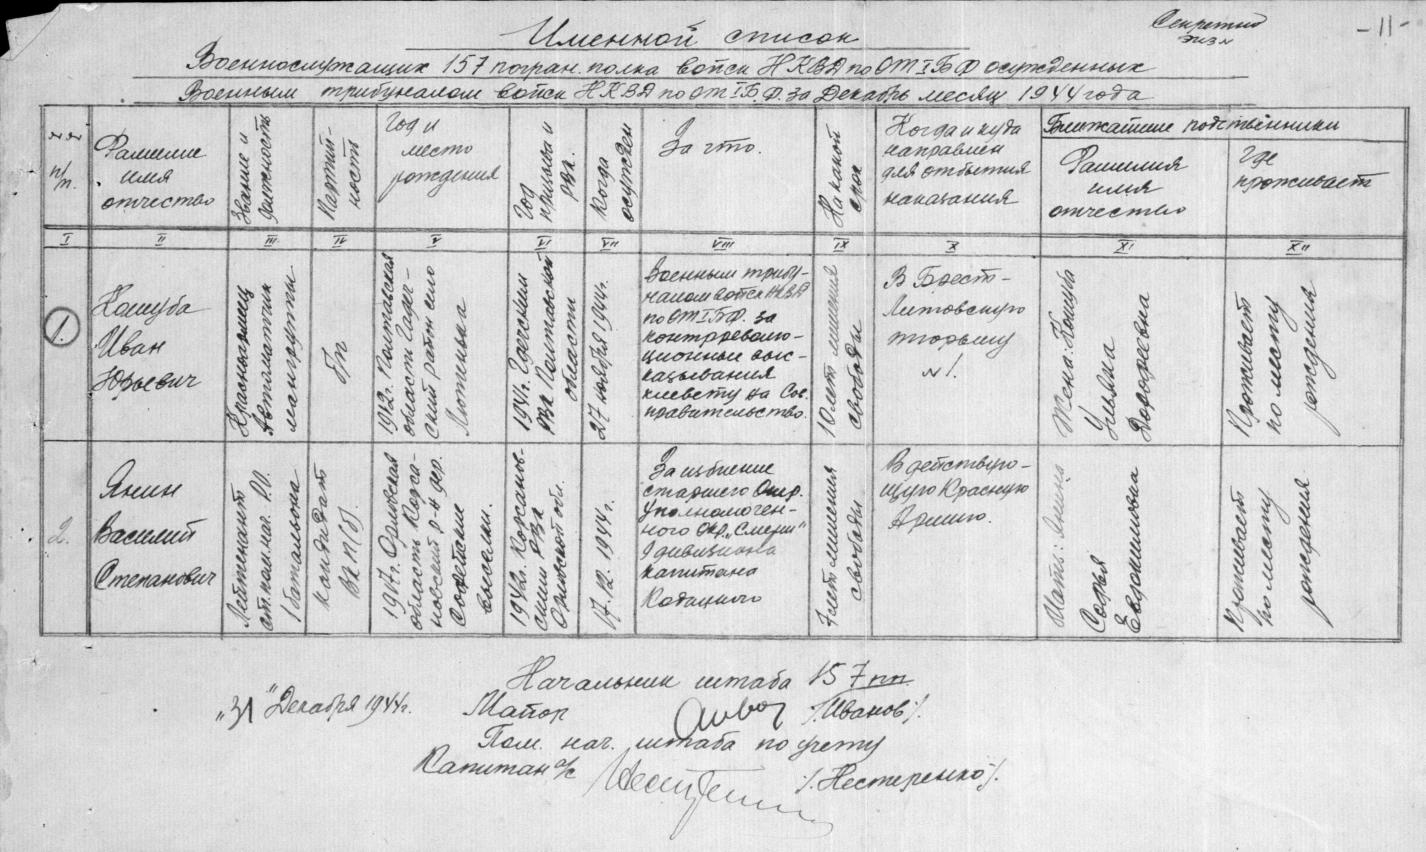 Секретно
экз №
-11-
Именной список
Военнослужащих 157 погран. полка войск НКВД по ОТ I БФ осужденных
Военным трибуналом войск НКВД по ОТ I Б.Ф. за Декабрь месяц 1944 года
№№
п/п.
Фамилие
имя
отчество
Звание и
должность
Партий-
ность
Год и
место
рождения
Год
призыва и
РВК.
Когда
осужден
За что.
На какой
срок
Когда и куда
направлен
для отбытия
наказания
Ближайшие родственники
Фамилия
имя
отчество
Где
проживает
I II III IV V VI VII VIII IX X XI XII
1.
Кошуба
Иван
Юрьевич
Красноармеец
Автоматчик
мангруппы
б/п
1912г. Полтавская
область Гадяч-
ский район село
1941г. Гадячским
РВК Полтавской
области
27 ноября 1944г.
Военным трибу-
налом войск НКВД
по ОТ I БФ. за
контрреволю-
ционные выс-
казывания
клевету на Сов.
правительство.
10 лет лишения
свободы
В Брест-
Литовскую
тюрьму
№ 1.
Жена: Кошуба
Ульяна
Проживает
по месту
рождения
2.
Янин
Василий
Степанович
Лейтенант
ст. пом. нач.
1 батальона
кандидат
ВКП(б).
1917г. Орловская
область
р-н дер.
Советские
выселки.
1942г.
ским РВК
Орловской обл.
17.12.1944г.
За избиение
старшего Опер.
Уполномочен-
ного окр. „Смерш"
9 дивизиона
капитана
7 лет лишения
свободы
В действую-
щую Красную
Армию.
Мать: Янина
Софья
Евдокимовна
Проживает
по месту
рождения
Начальник штаба 157 пп.
„31" Декабря 1944г.
Майор /Иванов/.
Пом. нач. штаба по учету
Капитан а/с /Нестеренко/.